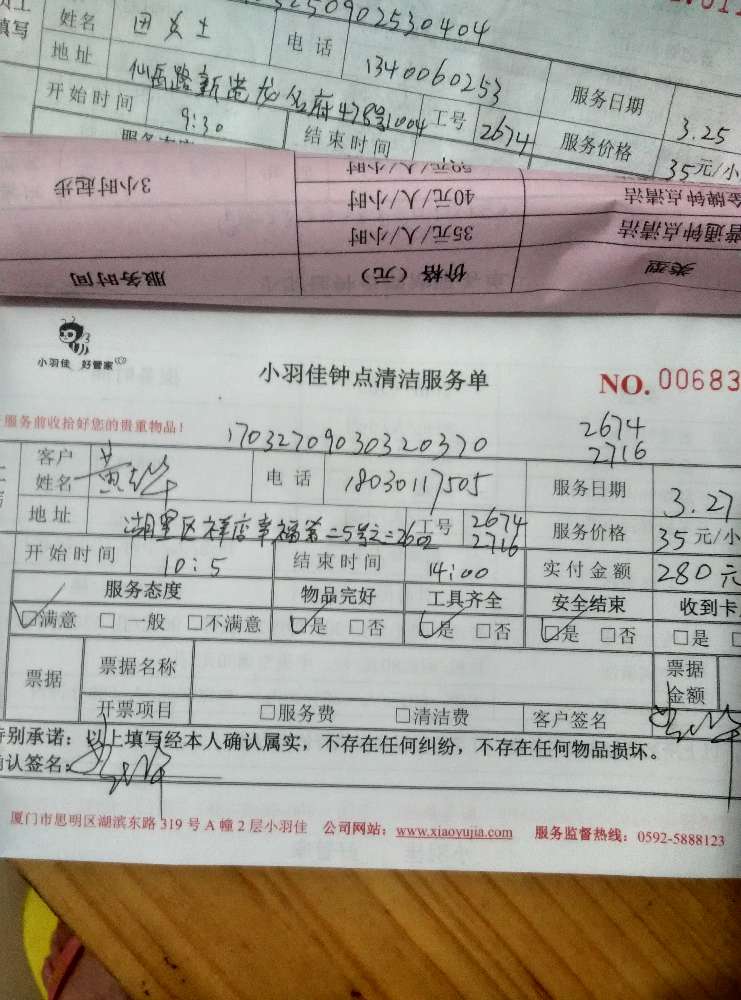 姓名 田女士 电话 1340060253 服务日期 3.25
填写
地址 仙岳路新港龙名府478号1004 工号 2674 服务价格 35元/小
开始时间 9:30 结束时间
3小时起步 40元/人/小时 金牌钟点清洁
35元/人/小时 普通钟点清洁
服务时间 价格（元） 类型
小羽佳 好管家
小羽佳钟点清洁服务单 NO. 00683
服务前收拾好您的贵重物品！
1703270903032037​0 2674
2716
客户姓名 黄 电话 18030117505 服务日期 3.27
地址 湖里区祥店 工号 2674 2716 服务价格 35元/小
开始时间 10:5 结束时间 14:00 实付金额 280元
服务态度 物品完好 工具齐全 安全结束 收到卡
☑满意 □一般 □不满意 ☑是 □否 ☑是 □否 ☑是 □否 □是 □
票据 票据名称 票据金额
开票项目 □服务费 □清洁费 客户签名
特别承诺：以上填写经本人确认属实，不存在任何纠纷，不存在任何物品损坏。
确认签名：
厦门市思明区湖滨东路 319 号 A 幢 2 层小羽佳 公司网站：www.xiaoyujia.com 服务监督热线：0592-5888123